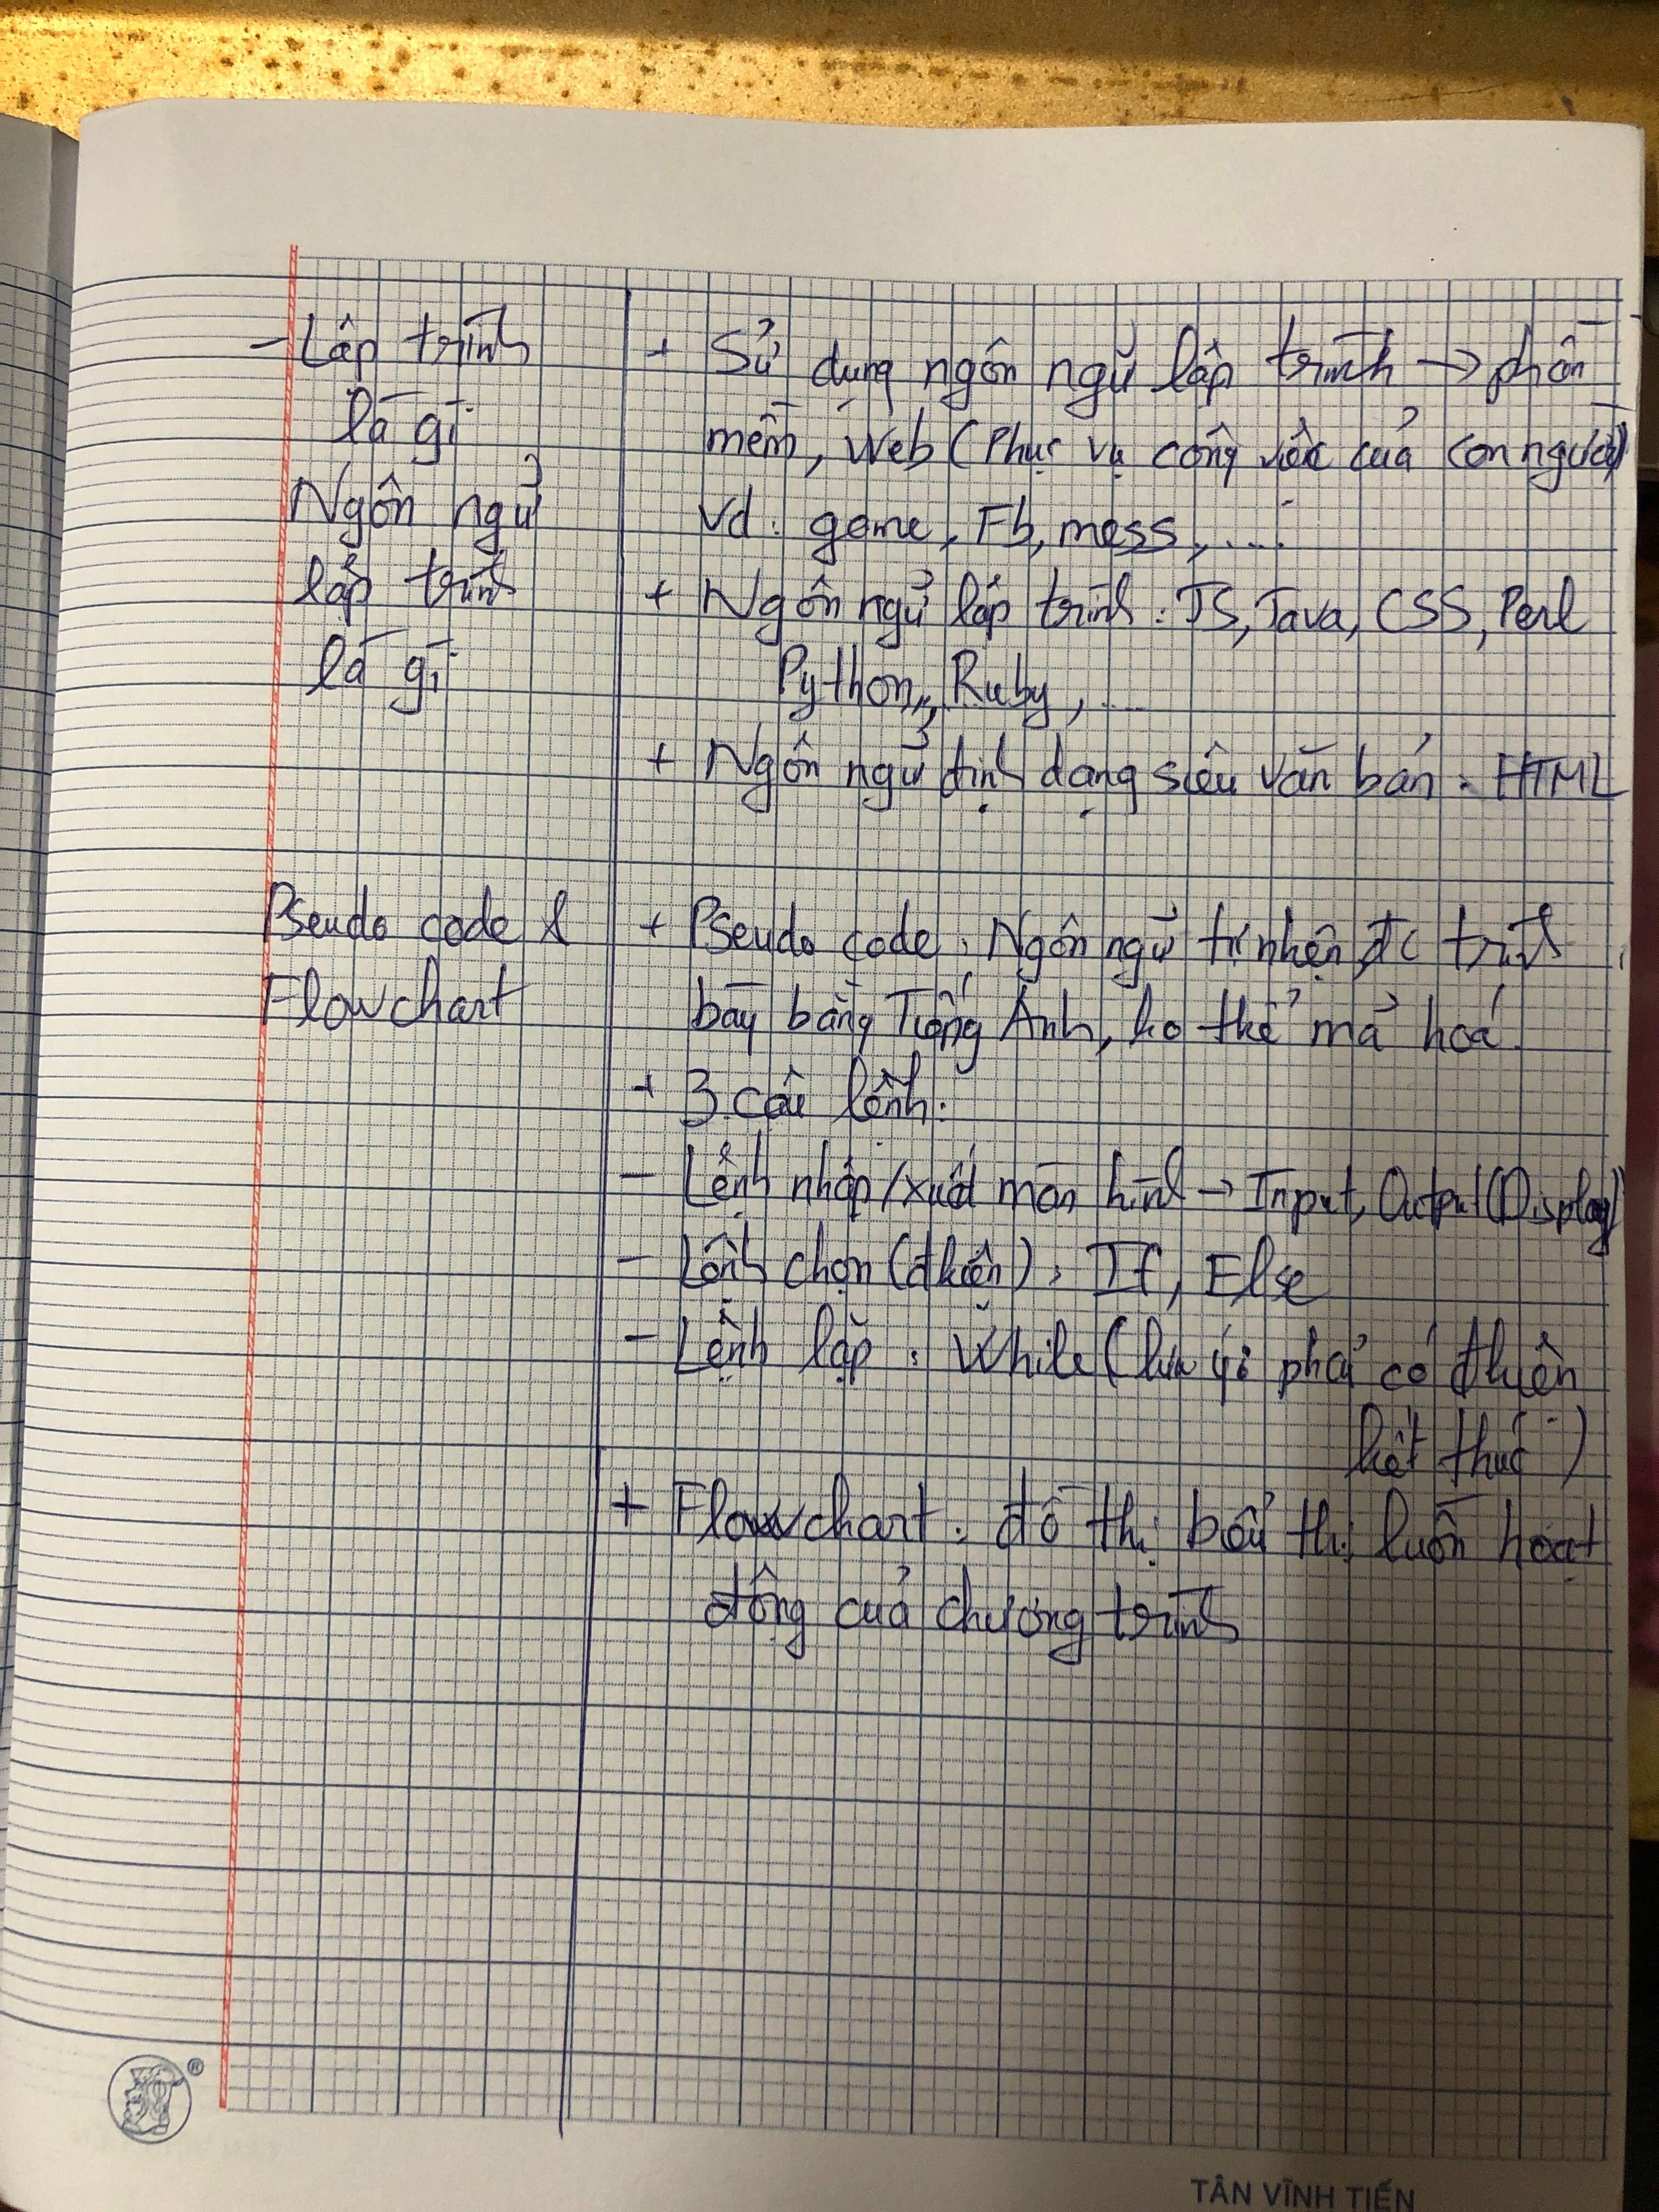 - Lập trình
là gì
Ngôn ngử
lập trình
là gì
+ Sử dụng ngôn ngữ lập trình → phần
mềm, Web (Phục vụ công việc của con người)
vd: game, Fb, mess, ....
+ Ngôn ngử lập trình: JS, Java, CSS, Perl
Python, Ruby, ...
+ Ngôn ngử định dạng siêu văn bản: HTML
Pseudo code &
Flowchart
+ Pseudo code: Ngôn ngử tự nhiên, đc trình
bày bằng Tiếng Anh, ko thể mả hoá.
+ 3 câu lệnh:
- Lệnh nhập/xuất màn hình → Input, Output (Display)
- Lệnh chọn (đkiện): If, Else
- Lệnh lặp: While (lưu ý: phải có đkiện
kết thúc)
+ Flowchart: đồ thị biểu thị luồn hoạt
động của chương trình
®
TÂN VĨNH TIẾN